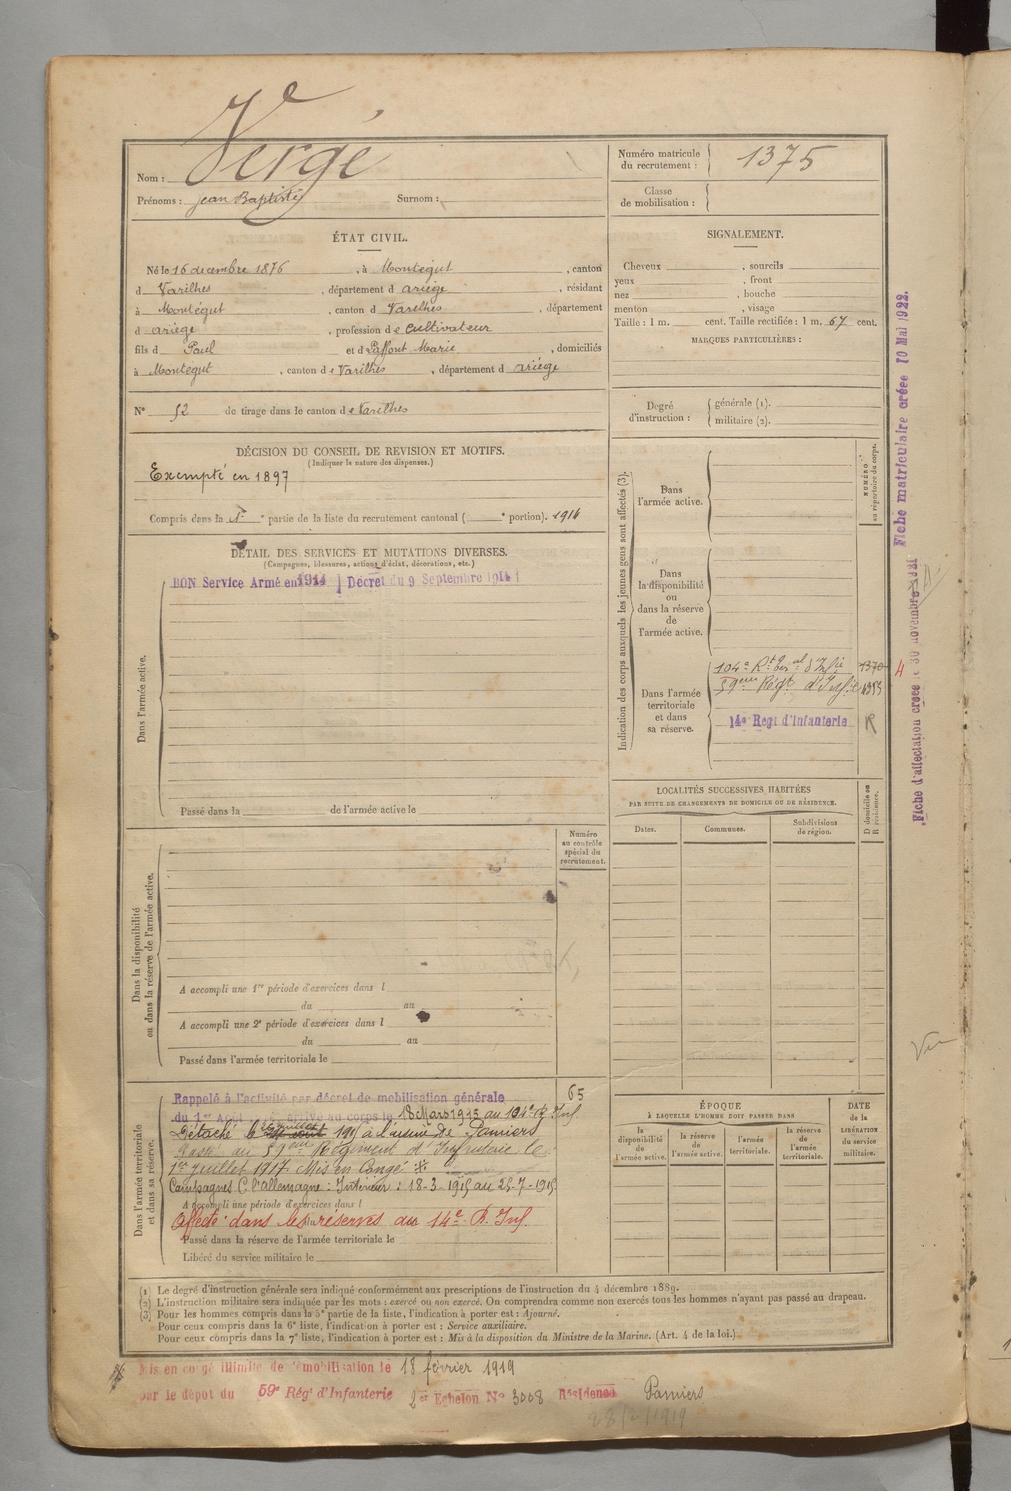 Nom : Vergé
Prénoms : Jean Baptiste Surnom :
Numéro matricule du recrutement : 1375
Classe de mobilisation :
ÉTAT CIVIL.
Né le 16 decembre 1876, à Montégut, canton
d Varilhes, département d ariège, résidant
à Montégut, canton d Varilhes, département
d ariège, profession de cultivateur
fils d Paul et d Laffont Marie, domiciliés
à Montégut, canton de Varilhes, département d ariège
N° 52 de tirage dans le canton de Varilhes
SIGNALEMENT.
Cheveux , sourcils
yeux , front
nez , bouche
menton , visage
Taille : 1 m. cent. Taille rectifiée : 1 m. 67 cent.
MARQUES PARTICULIÈRES :
Degré d'instruction : générale (1).
militaire (2).
DÉCISION DU CONSEIL DE REVISION ET MOTIFS.
(Indiquer la nature des dispenses.)
Exempté en 1897
Compris dans la 1e partie de la liste du recrutement cantonal ( e portion). 1914
DÉTAIL DES SERVICES ET MUTATIONS DIVERSES.
(Campagnes, blessures, actions d'éclat, décorations, etc.)
BON Service Armé en 1914 Décret du 9 Septembre 1914
Dans l'armée active.
Passé dans la de l'armée active le
Indication des corps auxquels les jeunes gens sont affectés (3).
NUMÉRO au répertoire du corps.
Dans l'armée active.
Dans la disponibilité ou dans la réserve de l'armée active.
Dans l'armée territoriale et dans sa réserve.
104e Rt Teral d'Infie 1370
59ème Régt d'Infie 1955
14e Regt d'Infanterie R
Fiche matriculaire créée 10 Mai 1922.
Fiche d'affectation créée le 30 novembre 1921
4
LOCALITÉS SUCCESSIVES HABITÉES
PAR SUITE DE CHANGEMENTS DE DOMICILE OU DE RÉSIDENCE.
Dates. Communes. Subdivisions de région. D domicile ou R résidence.
Numéro au contrôle spécial du recrutement.
Dans la disponibilité ou dans la réserve de l'armée active.
A accompli une 1re période d'exercices dans l
du au
A accompli une 2e période d'exercices dans l
du au
Passé dans l'armée territoriale le
Dans l'armée territoriale et dans sa réserve.
65
Rappelé à l'activité par décret de mobilisation générale
du 1er Août arrivé au corps le 18 Mars 1915 au 104e R. Inf
Détaché le 26 juillet août 1915 à l'usine De Pamiers
Passé au 59ème Régiment d'Infanterie le
1er juillet 1917 Mis en Congé
Campagnes C. l'allemagne : Intérieur : 18-3-1915 au 25-7-1915
A accompli une période d'exercices dans l
Affecté dans les réserves au 14e R. Inf.
Passé dans la réserve de l'armée territoriale le
Libéré du service militaire le
ÉPOQUE
À LAQUELLE L'HOMME DOIT PASSER DANS
la disponibilité de l'armée active.
la réserve de l'armée active.
l'armée territoriale.
la réserve de l'armée territoriale.
DATE de la LIBÉRATION du service militaire.
(1) Le degré d'instruction générale sera indiqué conformément aux prescriptions de l'instruction du 4 décembre 1889.
(2) L'instruction militaire sera indiquée par les mots : exercé ou non exercé. On comprendra comme non exercés tous les hommes n'ayant pas passé au drapeau.
(3) Pour les hommes compris dans la 5e partie de la liste, l'indication à porter est : Ajourné.
Pour ceux compris dans la 6e liste, l'indication à porter est : Service auxiliaire.
Pour ceux compris dans la 7e liste, l'indication à porter est : Mis à la disposition du Ministre de la Marine. (Art. 4 de la loi.)
Mis en congé illimité de démobilisation le 18 février 1919
par le dépôt du 59e Régt d'Infanterie 2er Echelon N° 3008 Résidence Pamiers
28/2/1919